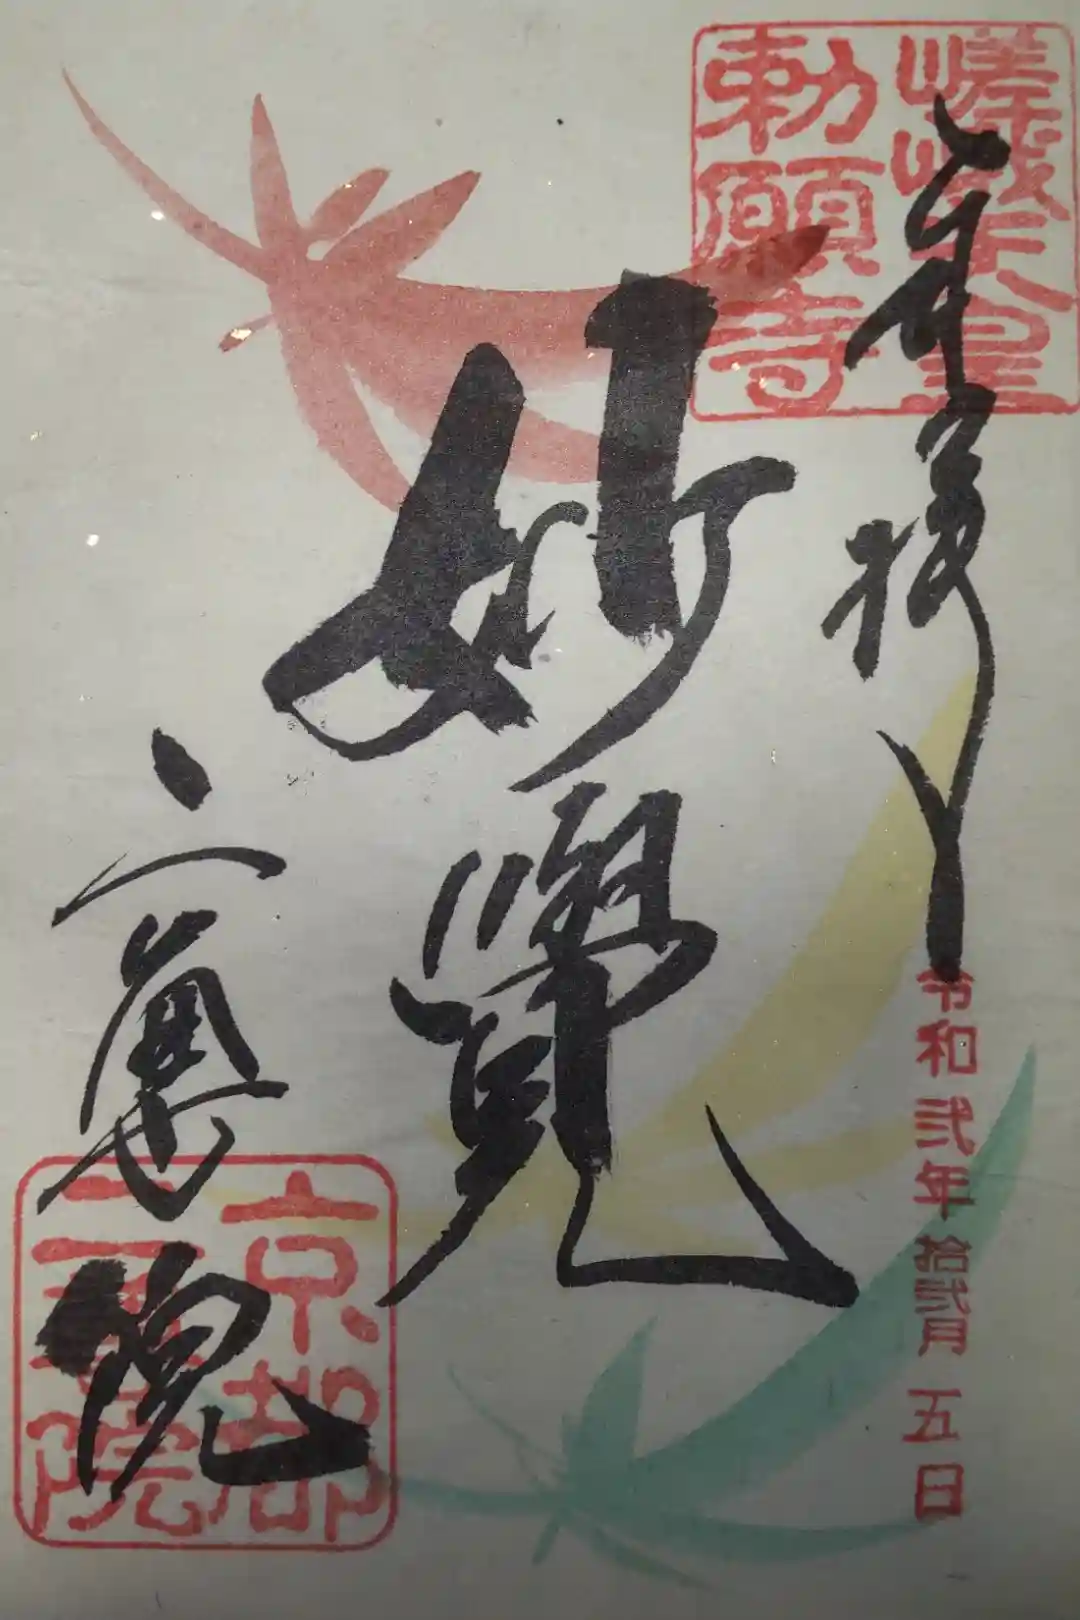 嵯峨天皇
勅願寺
奉拝
令和弐年拾弐月五日
妙覺
二尊院
京都
二尊院